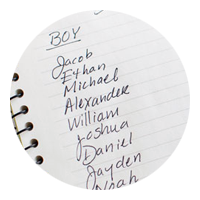 BOY
Jacob
Ethan
Michael
Alexander
William
Joshua
Daniel
Jayden
Noah